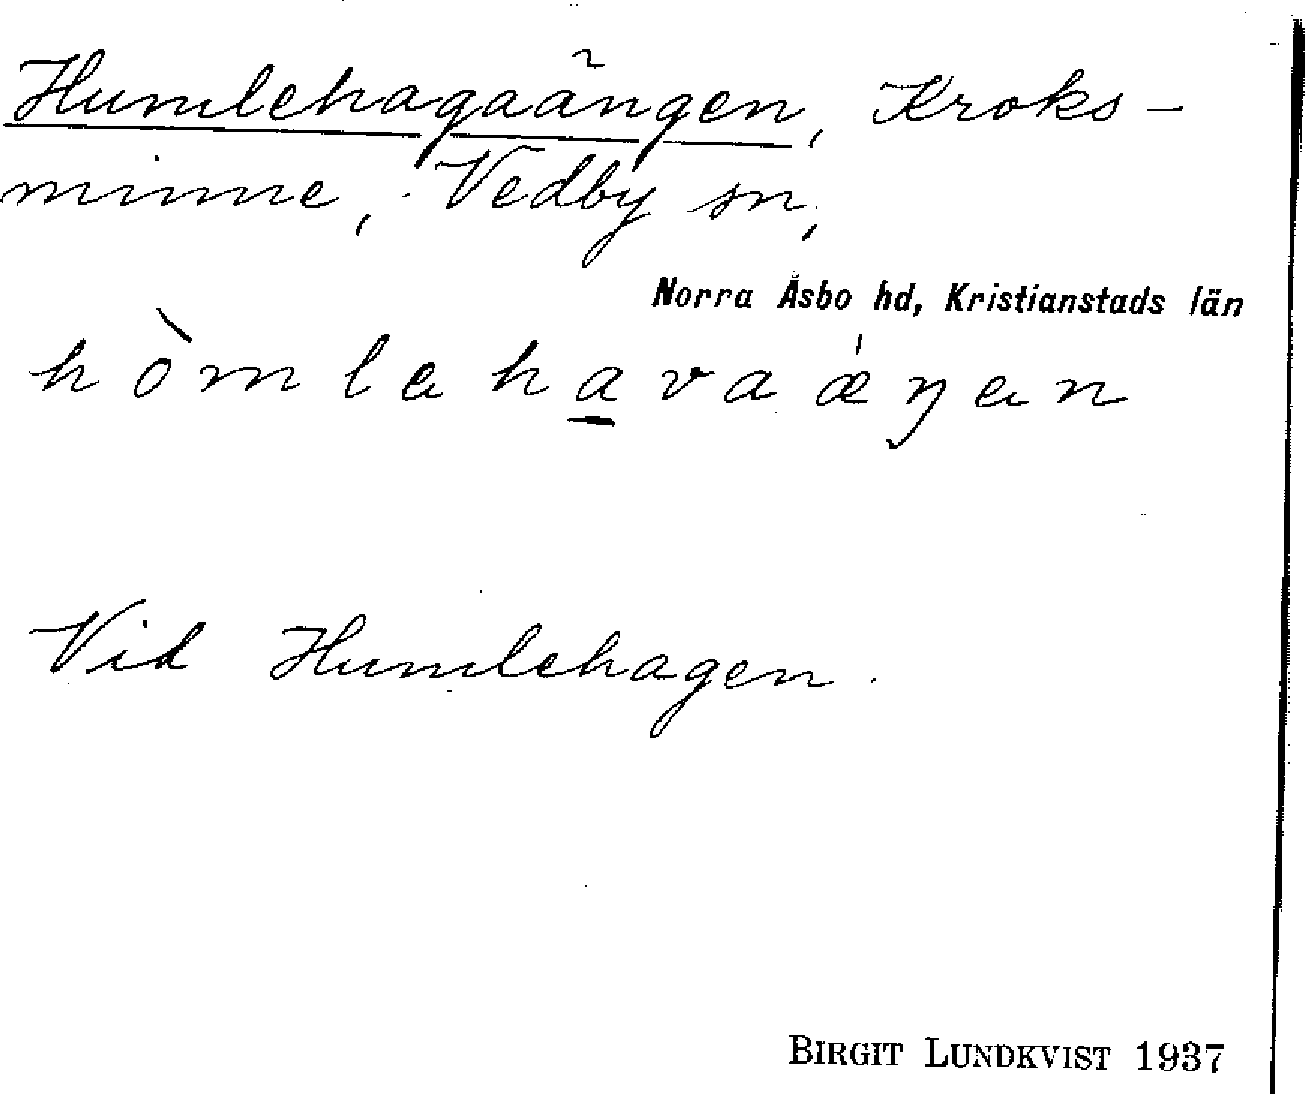 Humlehagaängen, Kroks-
minne, Vedby sn,
Norra Åsbo hd, Kristianstads län
hòmlahava̲ǽŋan
Vid Humlehagen.
BIRGIT LUNDKVIST 1937